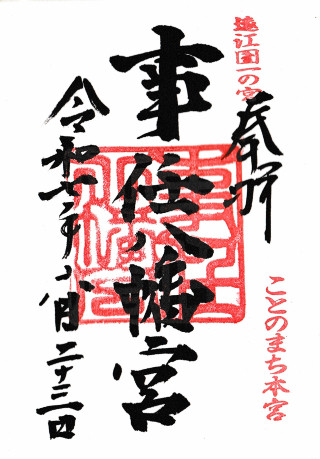 遠江国一の宮
奉拝
ことのまち本宮
事任八幡宮
令和七年八月二十三日